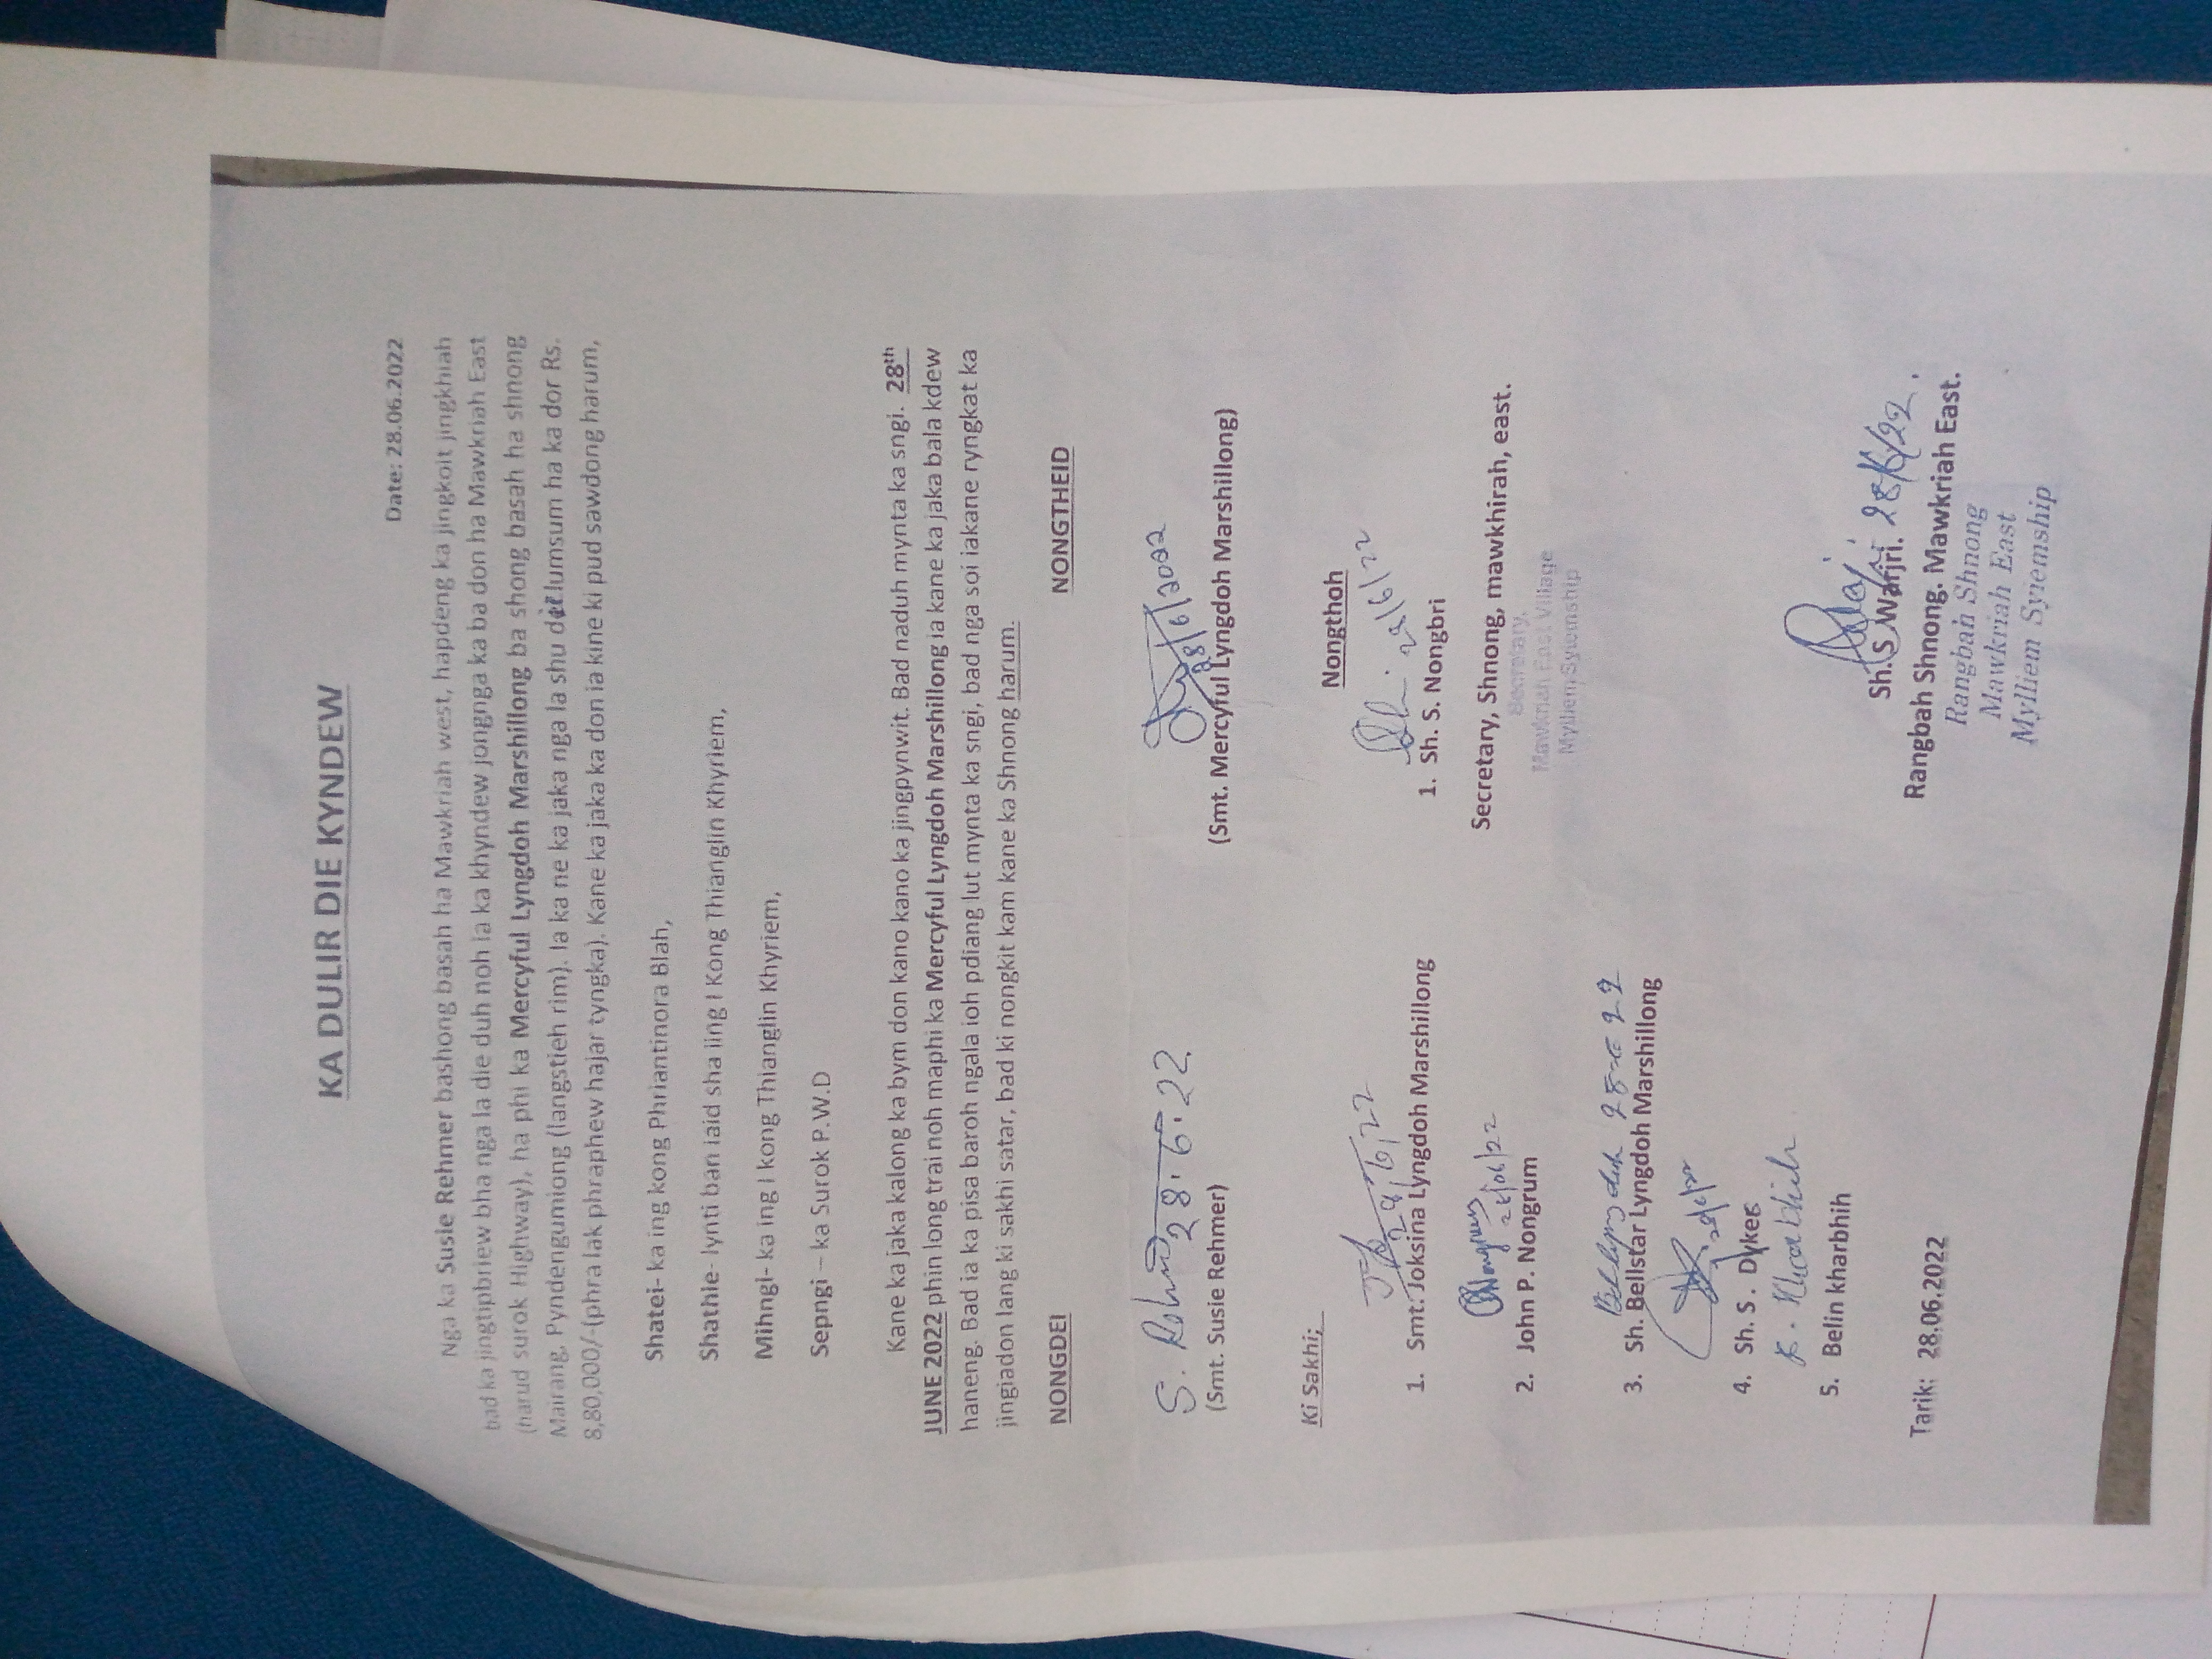 KA DULIR DIE KYNDEW
Date: 28.06.2022
Nga ka Susie Rehmer bashong basah ha Mawkriah west, hapdeng ka jingkoit jingkhiah
bad ka jingtipbriew bha nga la die duh noh ia ka khyndew jongnga ka ba don ha Mawkriah East
(harud surok Highway), ha phi ka Mercyful Lyngdoh Marshillong ba shong basah ha shnong
Mairang, Pyndengumiong (langstieh rim). Ia ka ne ka jaka nga la shu die lumsum ha ka dor Rs.
8,80,000/-(phra lak phraphew hajar tyngka). Kane ka jaka ka don ia kine ki pud sawdong harum,
Shatei- ka ing kong Phriantinora Blah,
Shathie- lynti ban iaid sha iing I Kong Thianglin Khyriem,
Mihngi- ka ing I kong Thianglin Khyriem,
Sepngi – ka Surok P.W.D
Kane ka jaka kalong ka bym don kano kano ka jingpynwit. Bad naduh mynta ka sngi. 28th
JUNE 2022 phin long trai noh maphi ka Mercyful Lyngdoh Marshillong ia kane ka jaka bala kdew
haneng. Bad ia ka pisa baroh ngala ioh pdiang lut mynta ka sngi, bad nga soi iakane ryngkat ka
jingiadon lang ki sakhi satar, bad ki nongkit kam kane ka Shnong harum.
NONGDEI NONGTHEID
28.6.22 28/6/2022
(Smt. Susie Rehmer) (Smt. Mercyful Lyngdoh Marshillong)
Ki Sakhi; Nongthoh
1. Smt. Joksina Lyngdoh Marshillong 1. Sh. S. Nongbri
2. John P. Nongrum Secretary, Shnong, mawkhirah, east.
Secretary,
Mawkriah East Village
Mylliem Syiemship
3. Sh. Bellstar Lyngdoh Marshillong
4. Sh. S . Dykes
5. Belin kharbhih
Sh. S. Warjri.
Tarik: 28.06.2022 Rangbah Shnong. Mawkriah East.
Rangbah Shnong
Mawkriah East
Mylliem Syiemship